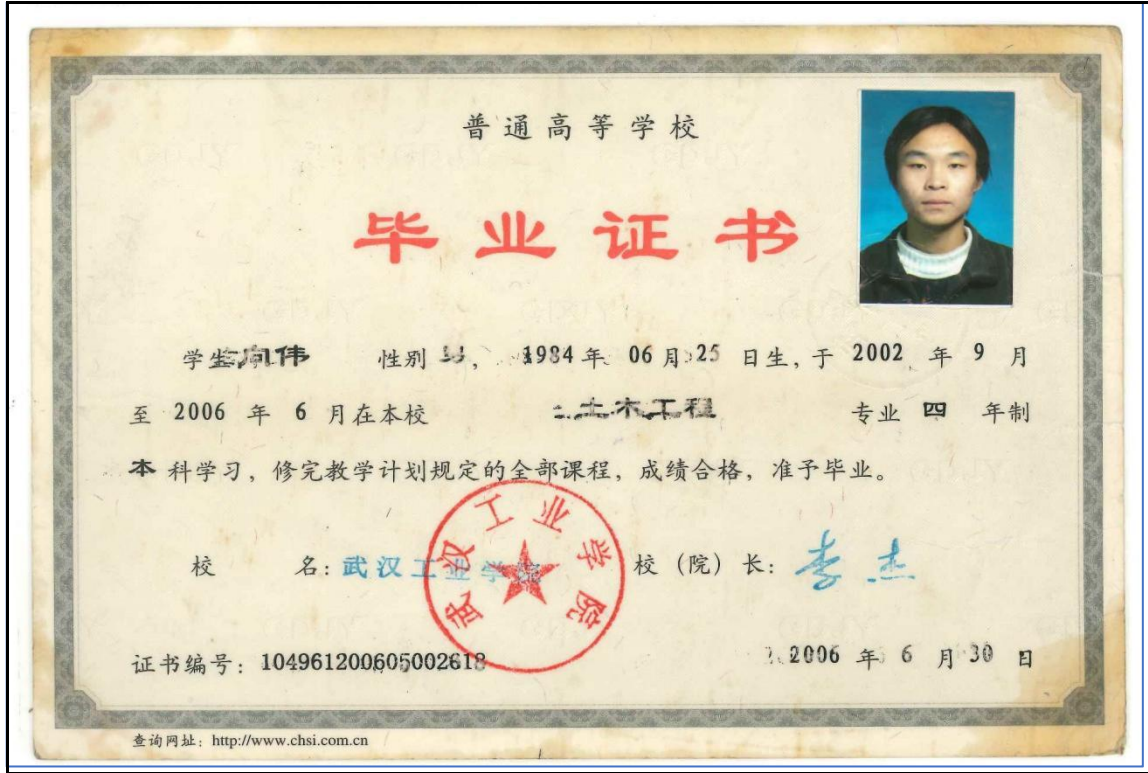 普通高等学校
毕业证书
学生 向伟 性别 男, 1984 年 06 月 25 日生, 于 2002 年 9 月
至 2006 年 6 月在本校 土木工程 专业 四 年制
本 科学习, 修完教学计划规定的全部课程, 成绩合格, 准予毕业。
武汉工业学院
校 名: 武汉工业学院 校 (院) 长: 李杰
证书编号: 104961200605002618 2006 年 6 月 30 日
查询网址: http://www.chsi.com.cn